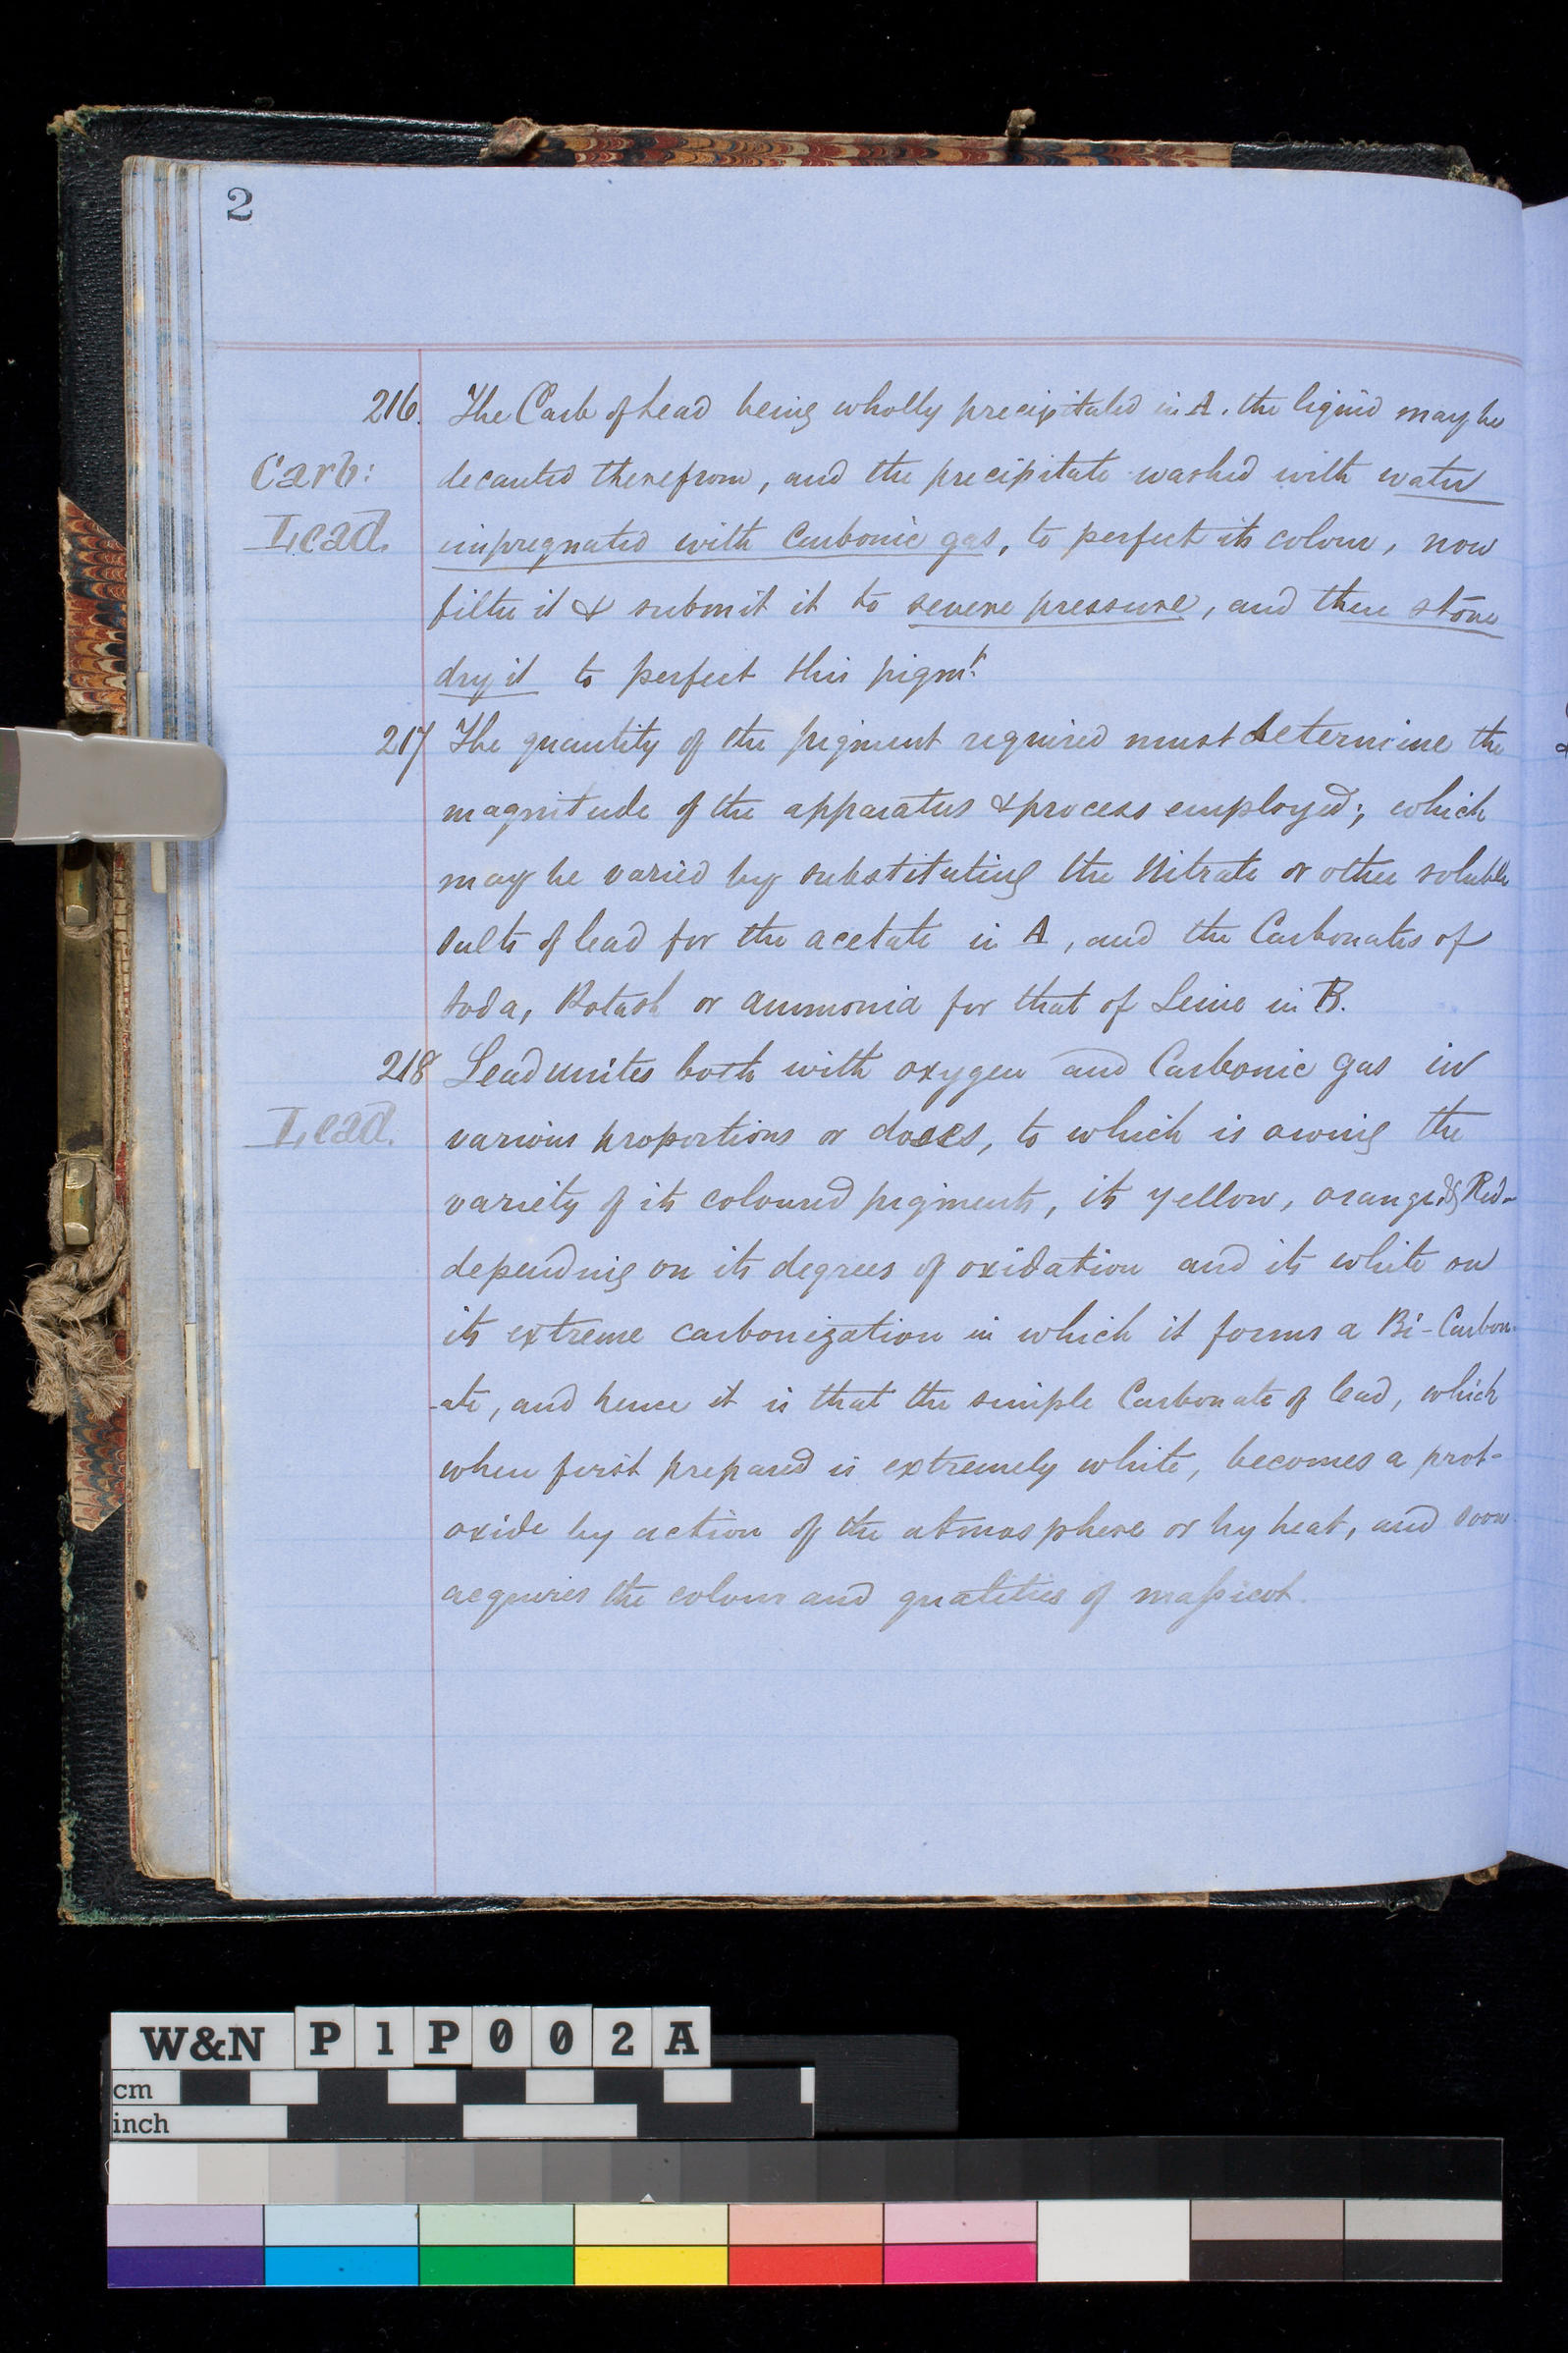 2
216. The Carb of Lead being wholly precipitated in A. the liquid may be
Carb: decanted therefrom, and the precipitate washed with water
Lead. impregnated with Carbonic gas, to perfect its colour, now
filter it & submit it to severe pressure, and then stove
dry it to perfect this pigmt.
217 The quantity of the pigment required must determine the
magnitude of the apparatus & process employed; which
may be varied by substituting the Nitrate or other soluble
salts of lead for the acetate in A, and the Carbonates of
Soda, Potash or Ammonia for that of Lime in B.
218 Lead unites both with oxygen and Carbonic gas in
Lead. various proportions or doses, to which is owing the
variety of its coloured pigments, its yellow, orange & Red-
depending on its degrees of oxidation and its white on
its extreme carbonization in which it forms a Bi-Carbon-
-ate, and hence it is that the simple Carbonate of lead, which
when first prepared is extremely white, becomes a prot-
oxide by action of the atmosphere or by heat, and soon
acquires the colour and qualities of maſsicot.
W&N P1P002A
cm
inch